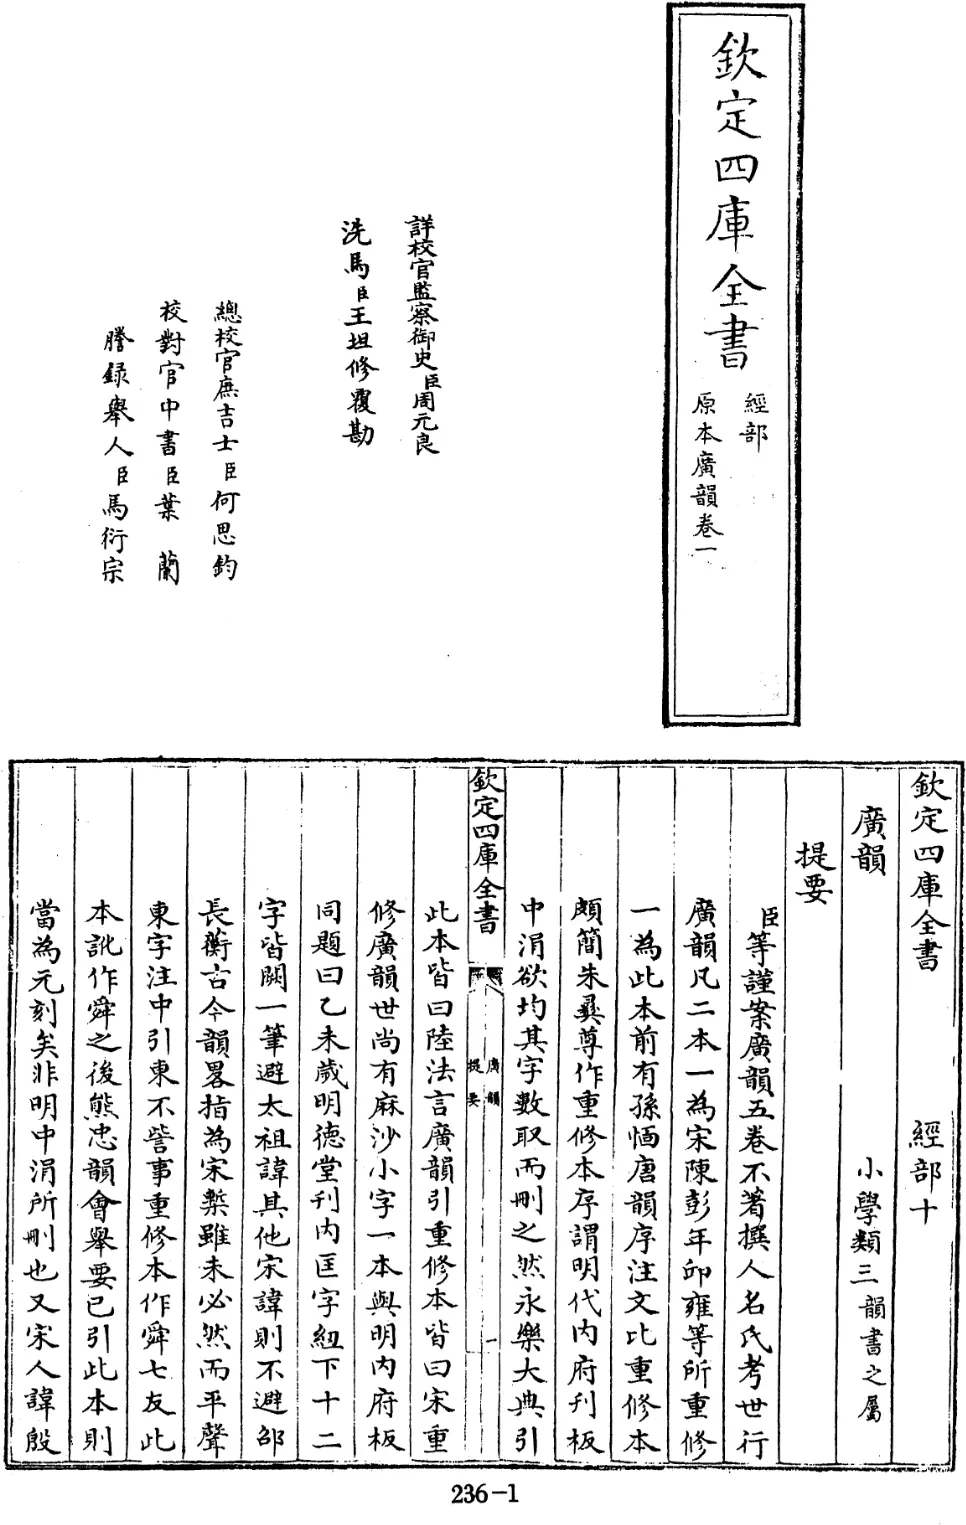 欽定四庫全書
經部
原本廣韻卷一
詳校官監察御史臣周元良
洗馬臣王坦修覆勘
總校官庶吉士臣何思鈞
校對官中書臣葉 蘭
謄録舉人臣馬衍宗
欽定四庫全書 經部十
廣韻 小學類三韻書之屬
提要
臣等謹案廣韻五卷不著撰人名氏考世行
廣韻凡二本一為宋陳彭年邱雍等所重修
一為此本前有孫愐唐韻序注文比重修本
頗簡朱彝尊作重修本序謂明代内府刊板
中涓欲均其字數取而刪之然永樂大典引
欽定四庫全書
廣韻
提要
一
此本皆曰陸法言廣韻引重修本皆曰宋重
修廣韻世尚有麻沙小字一本與明内府板
同題曰乙未歲明德堂刊内匡字紐下十二
字皆闕一筆避太祖諱其他宋諱則不避邵
長蘅古今韻畧指為宋槧雖未必然而平聲
東字注中引東不訾事重修本作舜七友此
本訛作舜之後熊忠韻會舉要已引此本則
當為元刻矣非明中涓所刪也又宋人諱殷
236-1